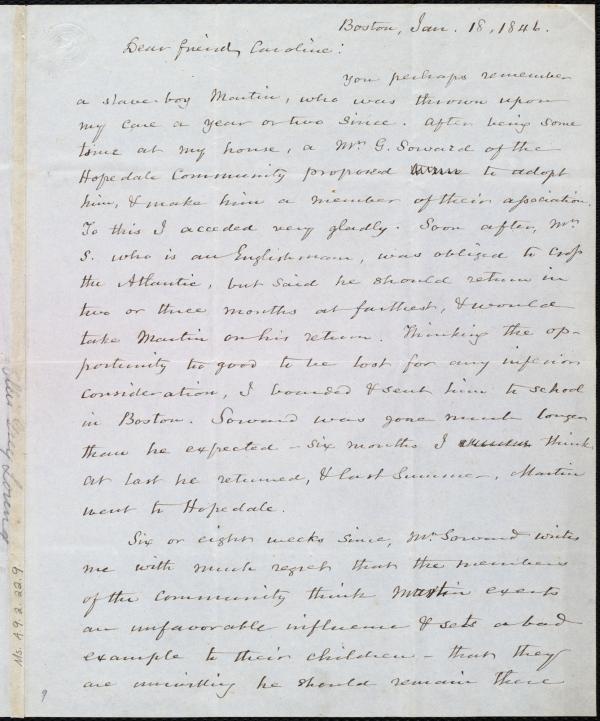 Boston, Jan. 18, 1846.
Dear friend, Caroline:
You perhaps remember
a slave-boy Martin, who was thrown upon
my care a year or two since. After being some
time at my house, a Mr. G. Soward of the
Hopedale Community proposed to adopt
him, & make him a member of their association.
To this I acceded very gladly. Soon after, Mr.
S. who is an Englishman, was obliged to cross
the Atlantic, but said he should return in
two or three months at farthest, & would
take Martin on his return. Thinking the op-
portunity too good to be lost for any inferior
consideration, I boarded & sent him to school
in Boston. Soward was gone much longer
than he expected – six months I think.
At last he returned, & last Summer, Martin
went to Hopedale.
Six or eight weeks since, Mr. Soward writes
me with much regret that the members
of the Community think Martin exerts
an unfavorable influence & sets a bad
example to their children – that they
are unwilling he should remain there
Ellis Gray Loring
Ms. A.9.2.22.9
9